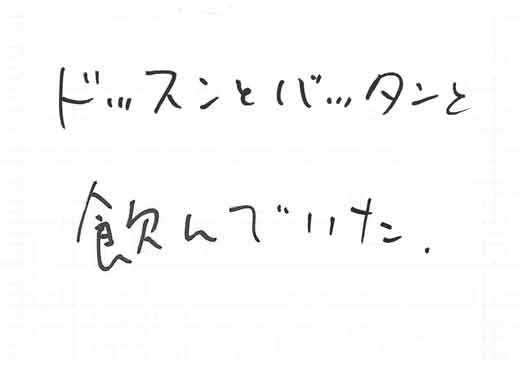 ドッスンとバッタンと
飲んでいた.